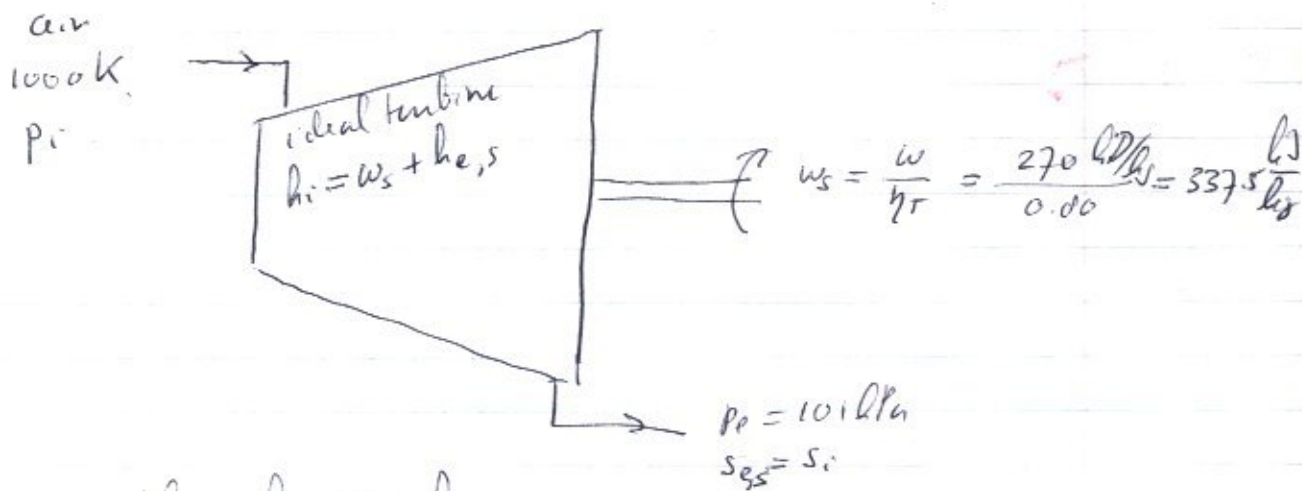 air
1000K
Pi
ideal turbine
hi = ws + he,s
ws = w/ηT = 270 kJ/kg / 0.80 = 337.5 kJ/kg
Pe = 101 kPa
se,s = si